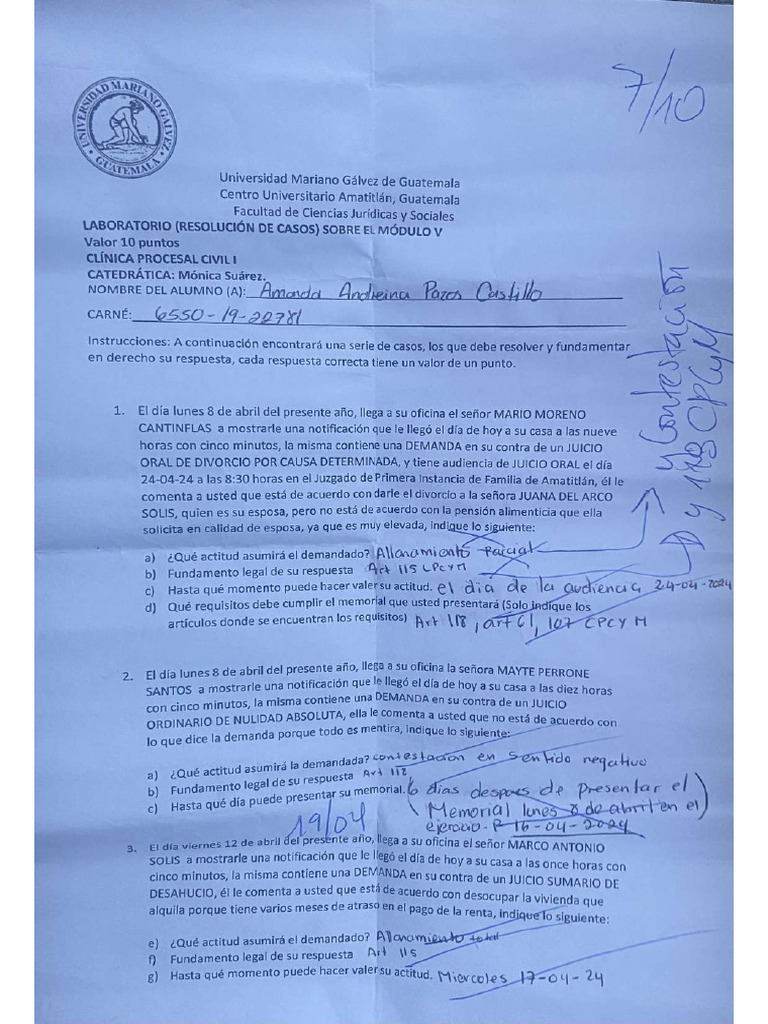 7/10
UNIVERSIDAD MARIANO GÁLVEZ
GUATEMALA
Universidad Mariano Gálvez de Guatemala
Centro Universitario Amatitlán, Guatemala
Facultad de Ciencias Jurídicas y Sociales
LABORATORIO (RESOLUCIÓN DE CASOS) SOBRE EL MÓDULO V
Valor 10 puntos
CLÍNICA PROCESAL CIVIL I
CATEDRÁTICA: Mónica Suárez.
NOMBRE DEL ALUMNO (A): Amanda Andreina Pazos Castillo
CARNÉ: 6550-19-22781
Instrucciones: A continuación encontrará una serie de casos, los que debe resolver y fundamentar
en derecho su respuesta, cada respuesta correcta tiene un valor de un punto.
y Contestación
y 118 CPCyM
1. El día lunes 8 de abril del presente año, llega a su oficina el señor MARIO MORENO
CANTINFLAS a mostrarle una notificación que le llegó el día de hoy a su casa a las nueve
horas con cinco minutos, la misma contiene una DEMANDA en su contra de un JUICIO
ORAL DE DIVORCIO POR CAUSA DETERMINADA, y tiene audiencia de JUICIO ORAL el día
24-04-24 a las 8:30 horas en el Juzgado de Primera Instancia de Familia de Amatitlán, él le
comenta a usted que está de acuerdo con darle el divorcio a la señora JUANA DEL ARCO
SOLIS, quien es su esposa, pero no está de acuerdo con la pensión alimenticia que ella
solicita en calidad de esposa, ya que es muy elevada, indique lo siguiente:
a) ¿Qué actitud asumirá el demandado? Allanamiento Parcial
b) Fundamento legal de su respuesta Art 115 CPCYM
c) Hasta qué momento puede hacer valer su actitud. el dia de la audiencia 24-04-2024
d) Qué requisitos debe cumplir el memorial que usted presentará (Solo indique los
artículos donde se encuentran los requisitos) Art 118, art 61, 107 CPCYM
2. El día lunes 8 de abril del presente año, llega a su oficina la señora MAYTE PERRONE
SANTOS a mostrarle una notificación que le llegó el día de hoy a su casa a las diez horas
con cinco minutos, la misma contiene una DEMANDA en su contra de un JUICIO
ORDINARIO DE NULIDAD ABSOLUTA, ella le comenta a usted que no está de acuerdo con
lo que dice la demanda porque todo es mentira, indique lo siguiente:
a) ¿Qué actitud asumirá la demandada? contestacion en sentido negativo
b) Fundamento legal de su respuesta Art 118
c) Hasta qué día puede presentar su memorial. 6 dias despues de presentar el
Memorial lunes 8 de abril en el
19/04
16-04-2024
3. El día viernes 12 de abril del presente año, llega a su oficina el señor MARCO ANTONIO
SOLIS a mostrarle una notificación que le llegó el día de hoy a su casa a las once horas con
cinco minutos, la misma contiene una DEMANDA en su contra de un JUICIO SUMARIO DE
DESAHUCIO, él le comenta a usted que está de acuerdo con desocupar la vivienda que
alquila porque tiene varios meses de atraso en el pago de la renta, indique lo siguiente:
e) ¿Qué actitud asumirá el demandado? Allanamiento total
f) Fundamento legal de su respuesta Art 115
g) Hasta qué momento puede hacer valer su actitud. Miercoles 17-04-24